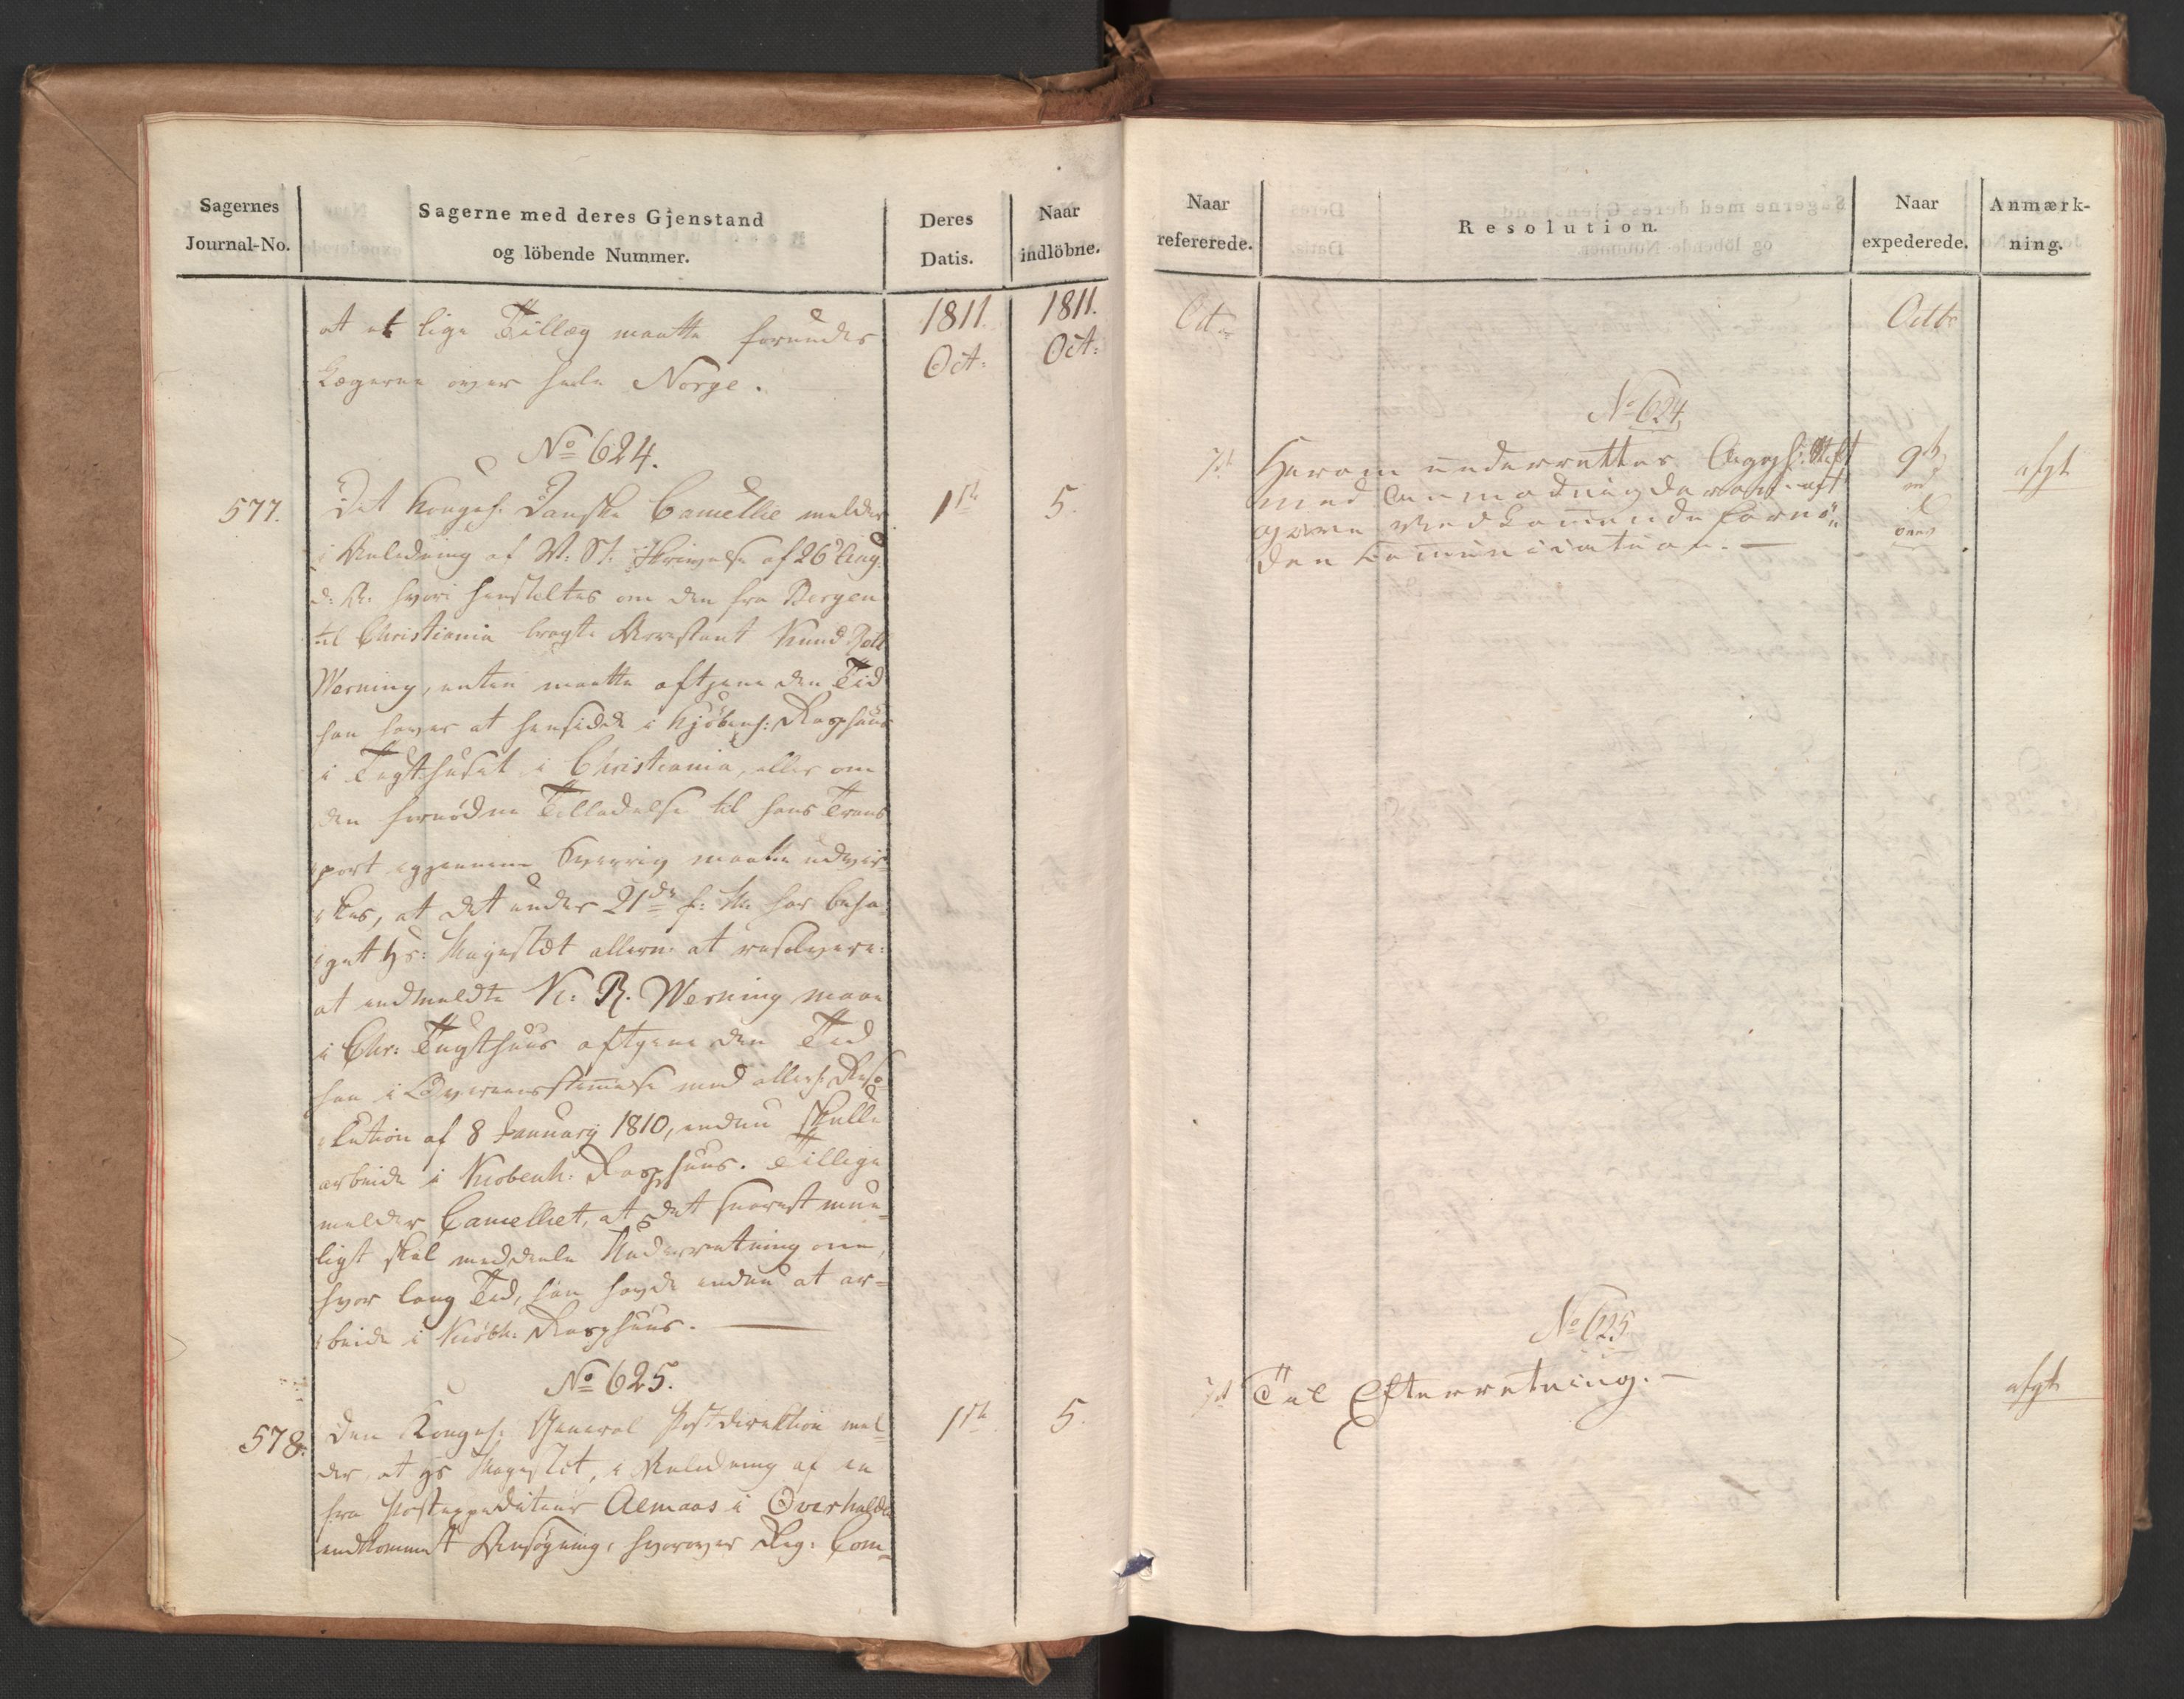 Sagernes
Journal-No.
Sagerne med deres Gjenstand
og löbende Nummer.
Deres
Datis.
Naar
indlöbne.
1811.
Oct:
1811.
Oct:
at et lige Tillæg maatte forundes
Lægerne over hele Norge.
No 624.
577.
Det Kongel. Danske Cancellie melder
i Anledning af V: St: Skrivelse af 26 Aug.
d: A: hvori henstilles om den fra Bergen
til Christiania bragte Arrestant Knud
Werning, enten maatte aftjene den Tid
han haver at hensidde i Kjöbenh: Rasphuus
i Tugthuset i Christiania, eller om
den fornödne Tilladelse til hans Trans
port igjennem Sverrig maatte udvir-
kes, at det under 21de f: M: har beha-
get Hs: Majestæt allern: at resolvere:
at anmeldte K: R. Werning maae
i Chr: Tugthuus aftjene den Tid
han i Overeensstemmelse med allerh: Reso-
lution af 8 January 1810, endnu skulle
arbeide i Kiobenh: Rasphuus. Tillige
melder Cancelliet, at det snarest mue-
ligt skal meddeele Underretning om,
hvor lang Tid, han havde endnu at ar-
beide i Kiöbh: Rasphuus.
1ste
5.
No 625.
578.
Den Kongel. General Postdirektion mel-
der, at Hs Majestet, i Anledning af en
fra Postexpediteur Aemaas i Overhalden
indkommet Ansögning, hvorover Reg: Com-
1ste
5.
Naar
refererede.
Resolution.
Naar
expederede.
Anmærk-
ning.
Octr
Octbr
No 624,
7d
Herom underrettes Aggerh: Stift
med Anmodning derom at
gjöre Vedkommende fornö-
den Communication.
9de
afgt
No 625
7d
Til Efterretning.
afgt